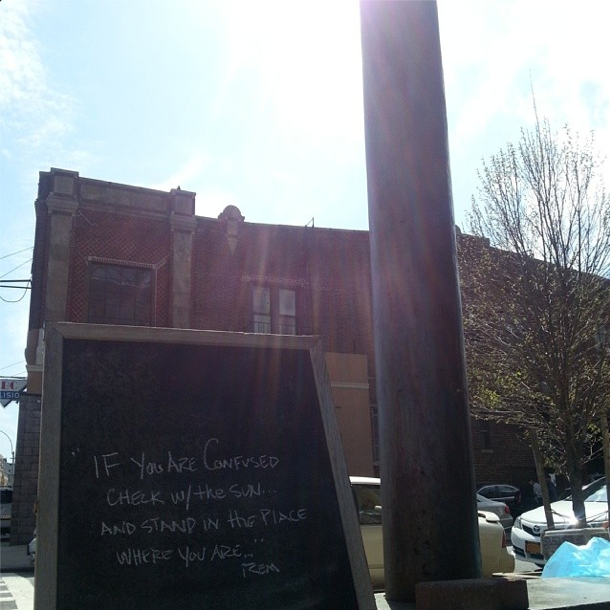 "IF YOU ARE CONFUSED
CHECK W/ the SUN...
AND STAND IN the PLACE
WHERE YOU ARE..."
REM
LISIO